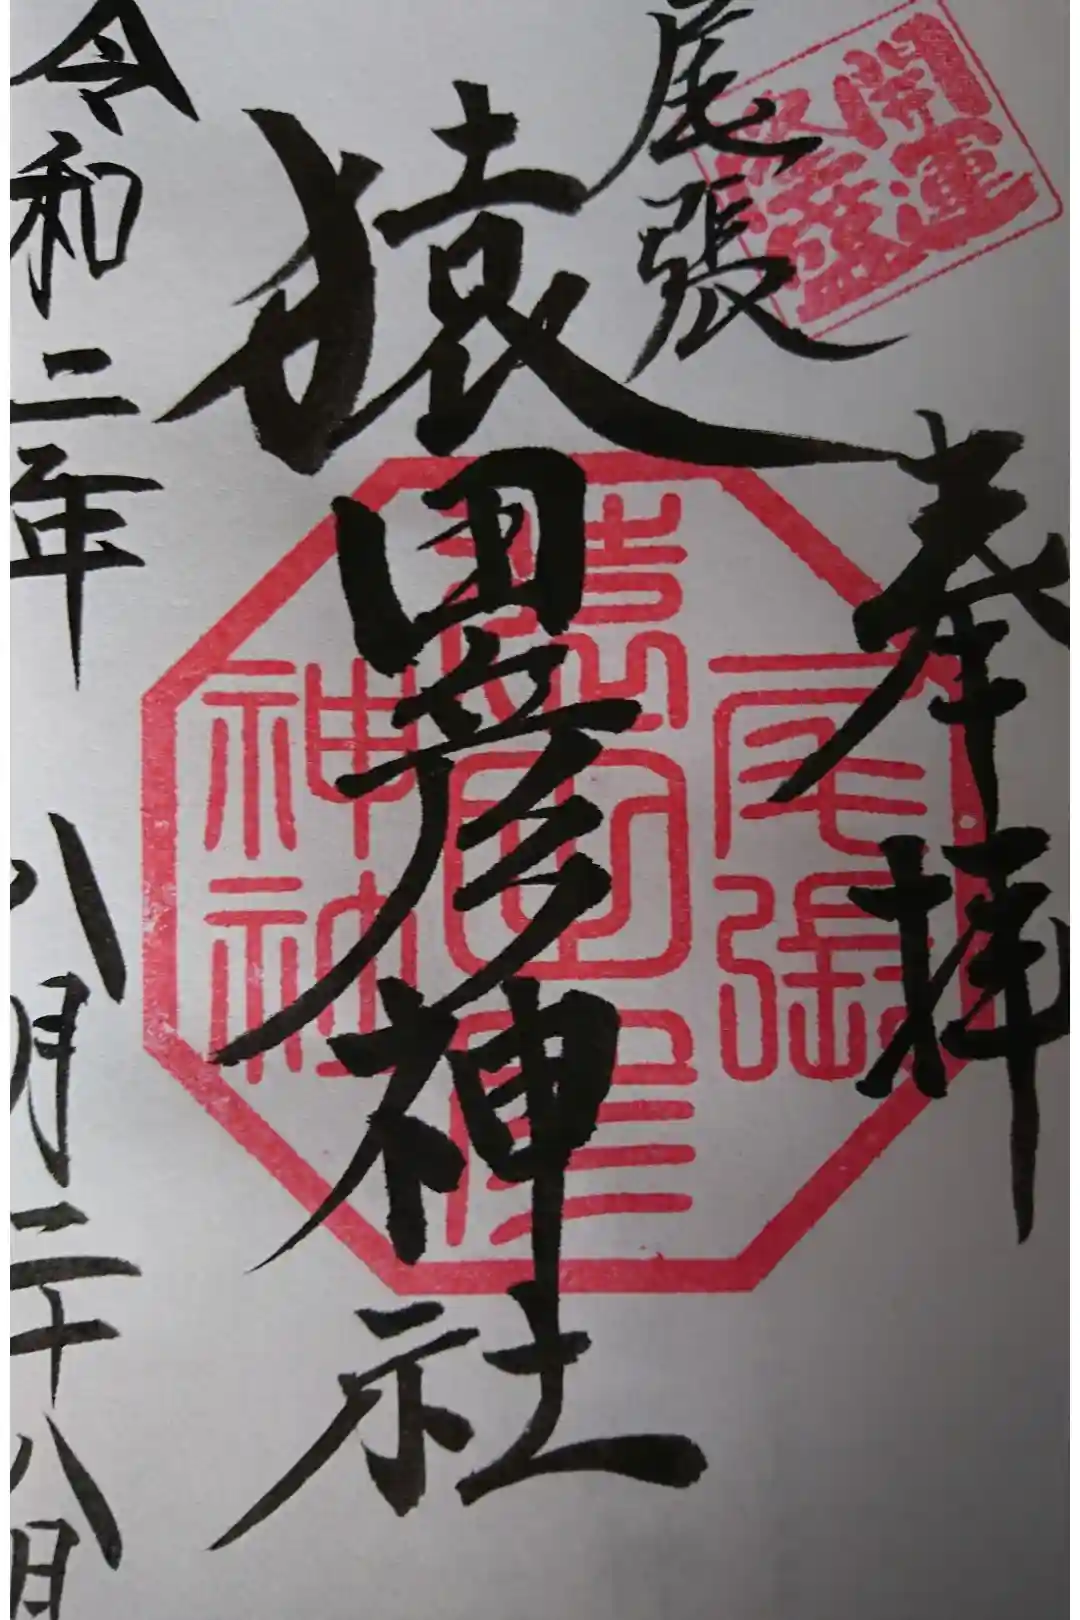 開運
奉拝
尾張
猿田彦神社
令和二年 八月二十八日
尾張
猿田彦
神社